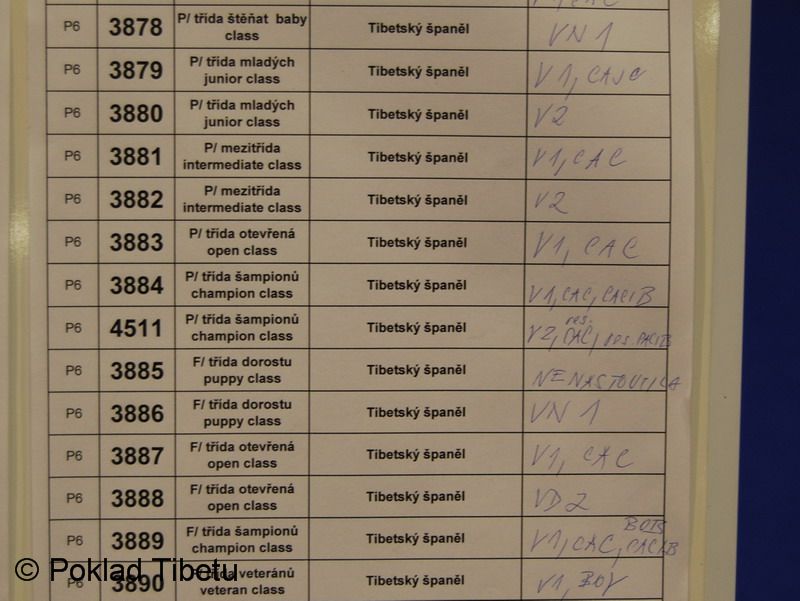 P6 3878 P/ třída štěňat baby class Tibetský španěl VN 1
P6 3879 P/ třída mladých junior class Tibetský španěl V1, CAJC
P6 3880 P/ třída mladých junior class Tibetský španěl V2
P6 3881 P/ mezitřída intermediate class Tibetský španěl V1, CAC
P6 3882 P/ mezitřída intermediate class Tibetský španěl V2
P6 3883 P/ třída otevřená open class Tibetský španěl V1, CAC
P6 3884 P/ třída šampionů champion class Tibetský španěl V1, CAC, CACIB
P6 4511 P/ třída šampionů champion class Tibetský španěl V2, res. CAC, res. CACIB
P6 3885 F/ třída dorostu puppy class Tibetský španěl NENASTOUPILA
P6 3886 F/ třída dorostu puppy class Tibetský španěl VN 1
P6 3887 F/ třída otevřená open class Tibetský španěl V1, CAC
P6 3888 F/ třída otevřená open class Tibetský španěl VD 2
P6 3889 F/ třída šampionů champion class Tibetský španěl V1, CAC, CACIB
P6 3890 F/ třída veteránů veteran class Tibetský španěl V1,
© Poklad Tibetu